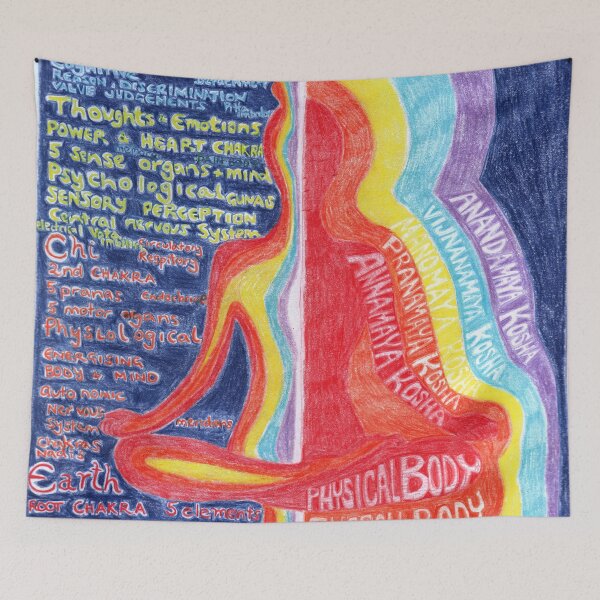 Cognitive
REASON, DISCRIMINATION
VALUE JUDGEMENTS
Thoughts & Emotions
POWER & HEART CHAKRA
5 sense organs + mind
Psychological GUNAS
SENSORY PERCEPTION
Central nervous System
Chi Circulatory
Respitory
2nd CHAKRA
5 pranas
5 motor ograns
Physiological
ENERGISING
BODY & MIND
autonomic
Nervous
System
meridians
chakras
Nadis
Earth
ROOT CHAKRA 5 elements
ANANDAMAYA KOSHA
VIJNANAMAYA KOSHA
MANOMAYA KOSHA
PRANAMAYA KOSHA
ANNAMAYA KOSHA
PHYSICAL BODY
BODY